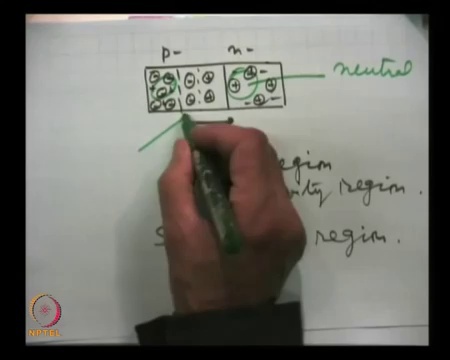 p- n-
neutral
region
region .
S region .
NPTEL